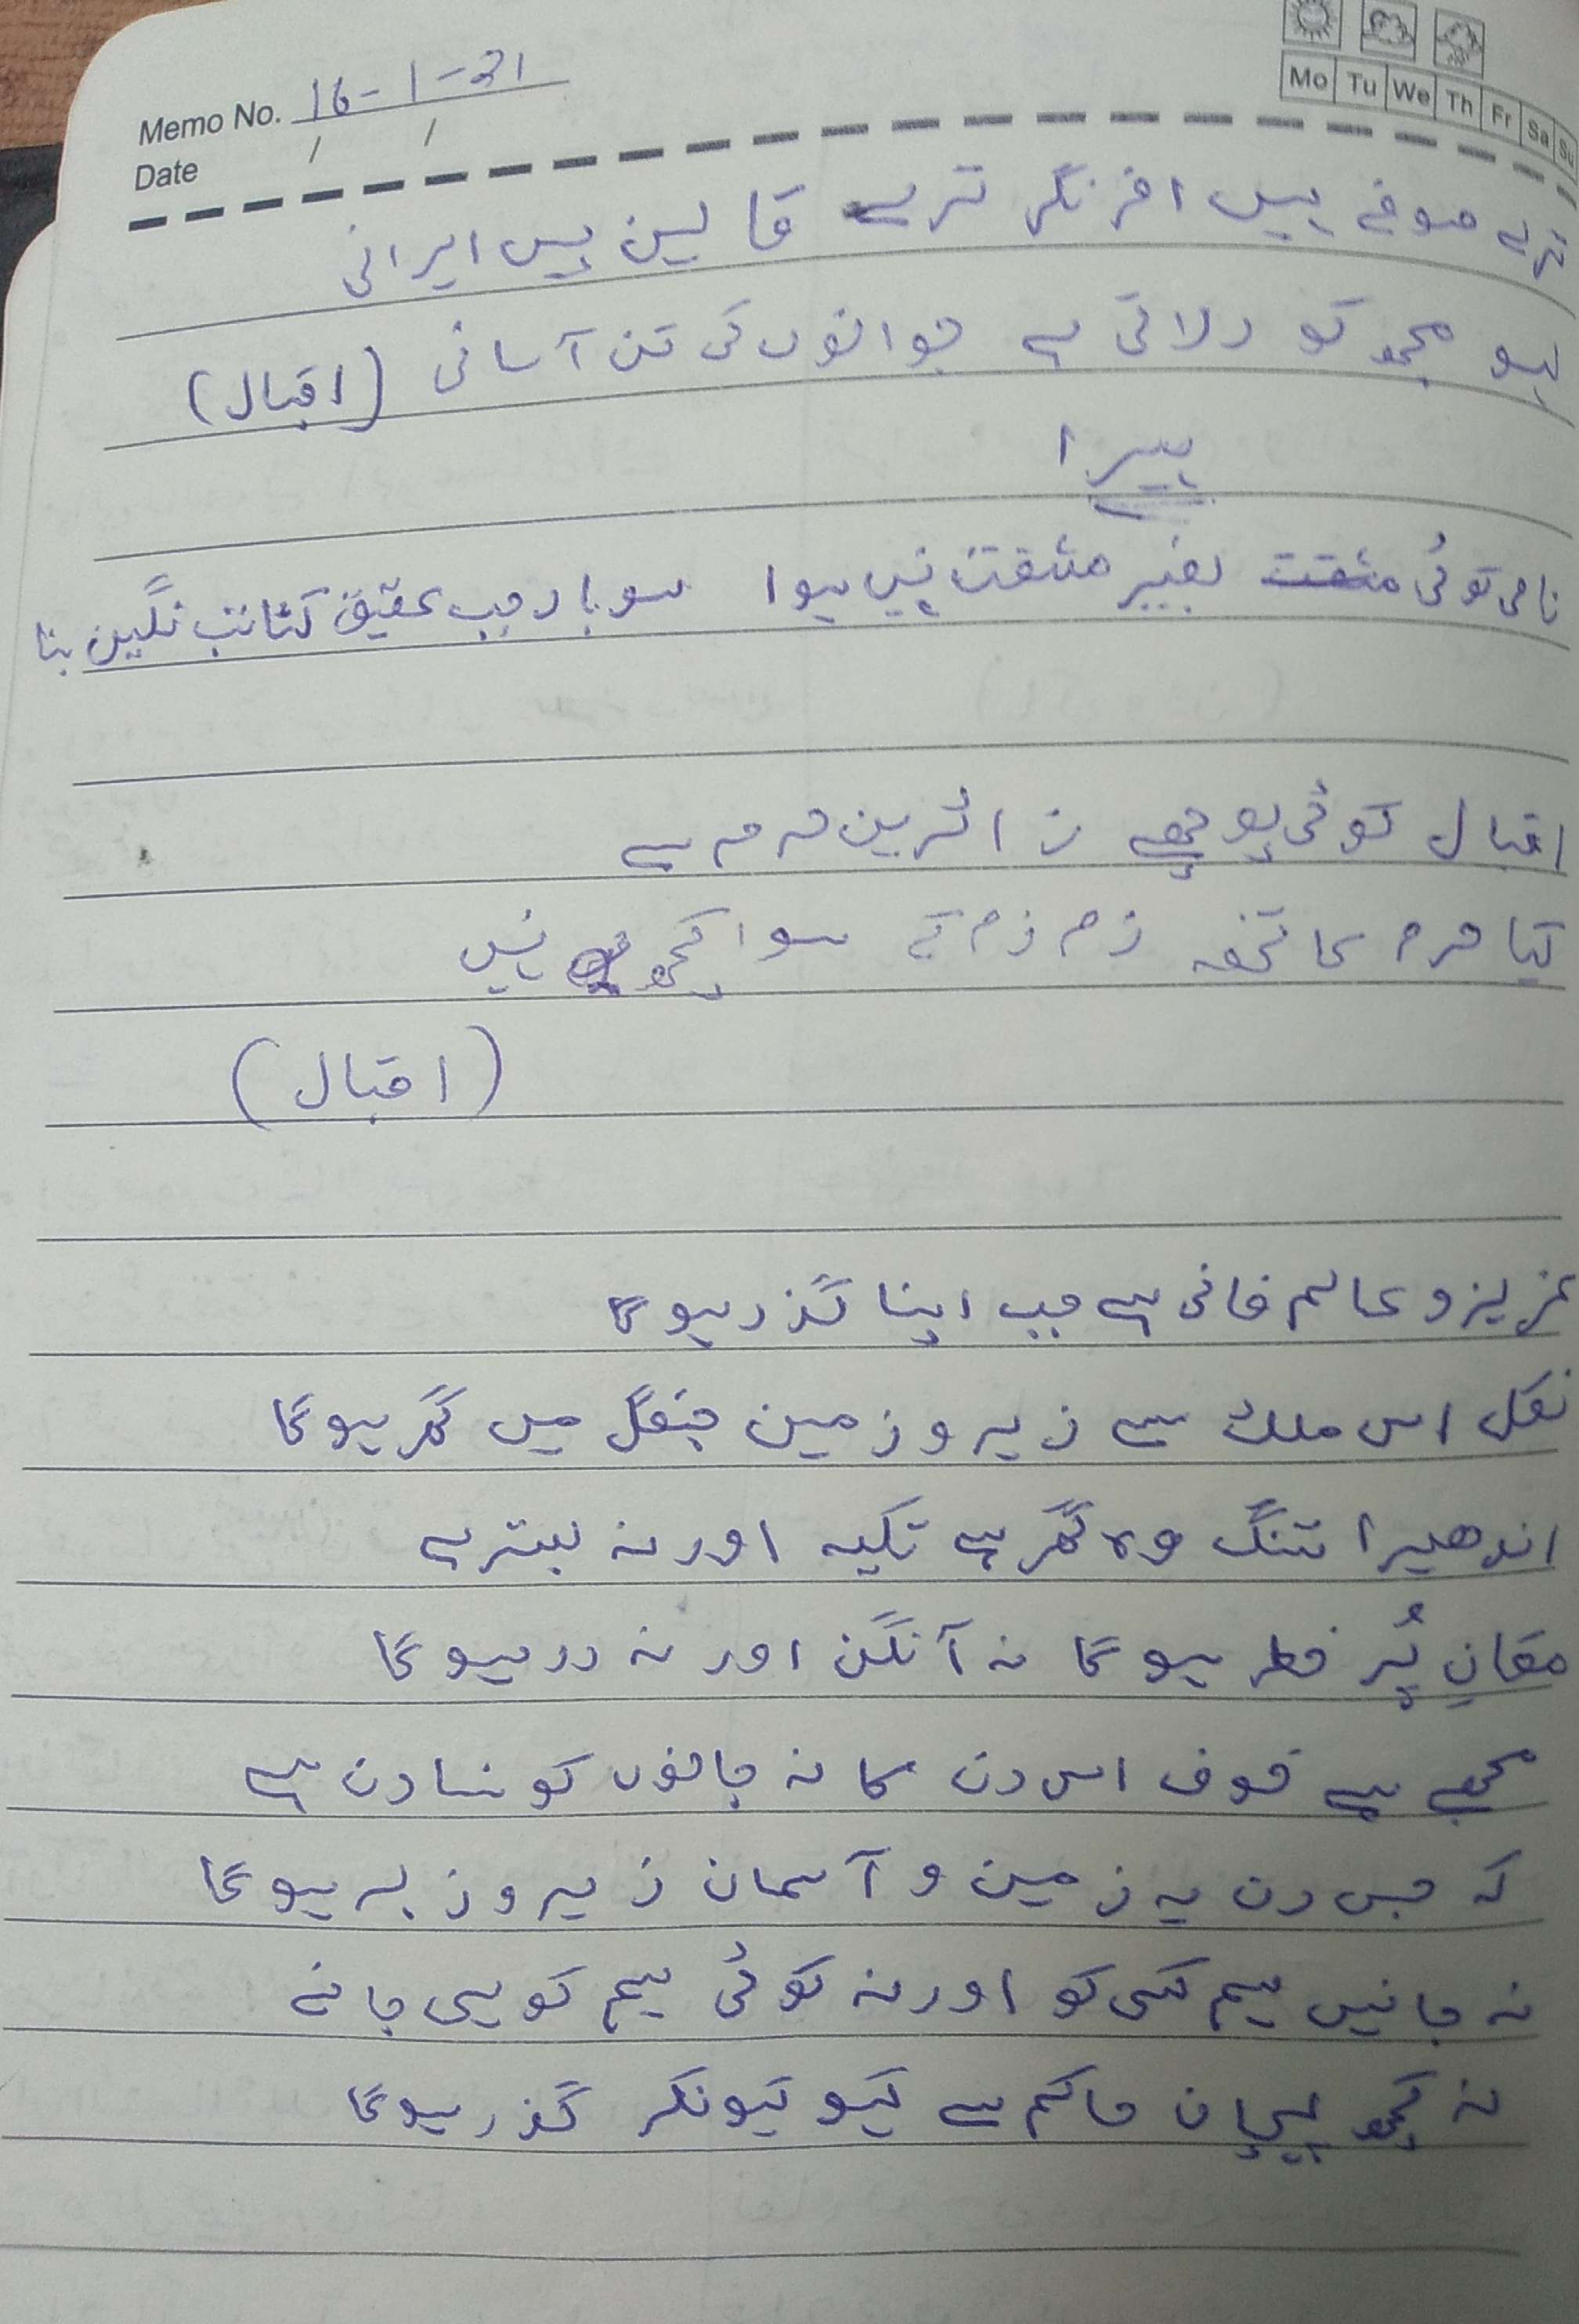 Memo No. 16-1-21
Date / /
Mo Tu We Th Fr Sa Su
ترے صوفے ہیں افرنگر ترے قالین ہیں ایرانی
لہو مجھ کو رلاتی ہے جوانوں کی تن آسانی (اقبال)
ہیرا
نامی کوئی مشقت بغیر مشقت نہیں ہوا سو بار جب عقیق کٹا تب نگین بنا
اقبال کوئی پوچھے زائرین حرم سے
کیا حرم کا تحفہ زم زم کے سوا کچھ نہیں
(اقبال)
عزیزو عالم فانی سے جب اپنا گذر ہوگا
نکل اس ملک سے زیر و زمین جنگل میں گھر ہوگا
اندھیرا تنگ وہ گھر ہے تکیہ اور نہ بستر ہے
مکانِ پُر خطر ہوگا نہ آنگن اور نہ در ہوگا
مجھے ہے خوف اس دن کا نہ جانوں کونسا دن ہے
کہ جس دن یہ زمین و آسمان زیر و زبر ہوگا
نہ جانیں ہم کسی کو اور نہ کوئی ہم کو ہی جانے
نہ کچھ پہچان حاکم سے کیو کیونکر گذر ہوگا